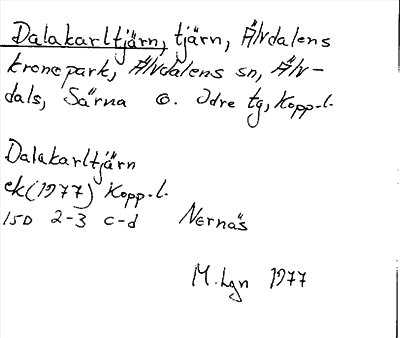 Dalakarltjärn, tjärn, Älvdalens
kronopark, Älvdalens sn, Älv-
dals, Särna o. Idre tg, Kopp.l.
Dalakarltjärn
ek(1977) Kopp.l.
15D 2-3 c-d Nernäs
M.Lgn 1977